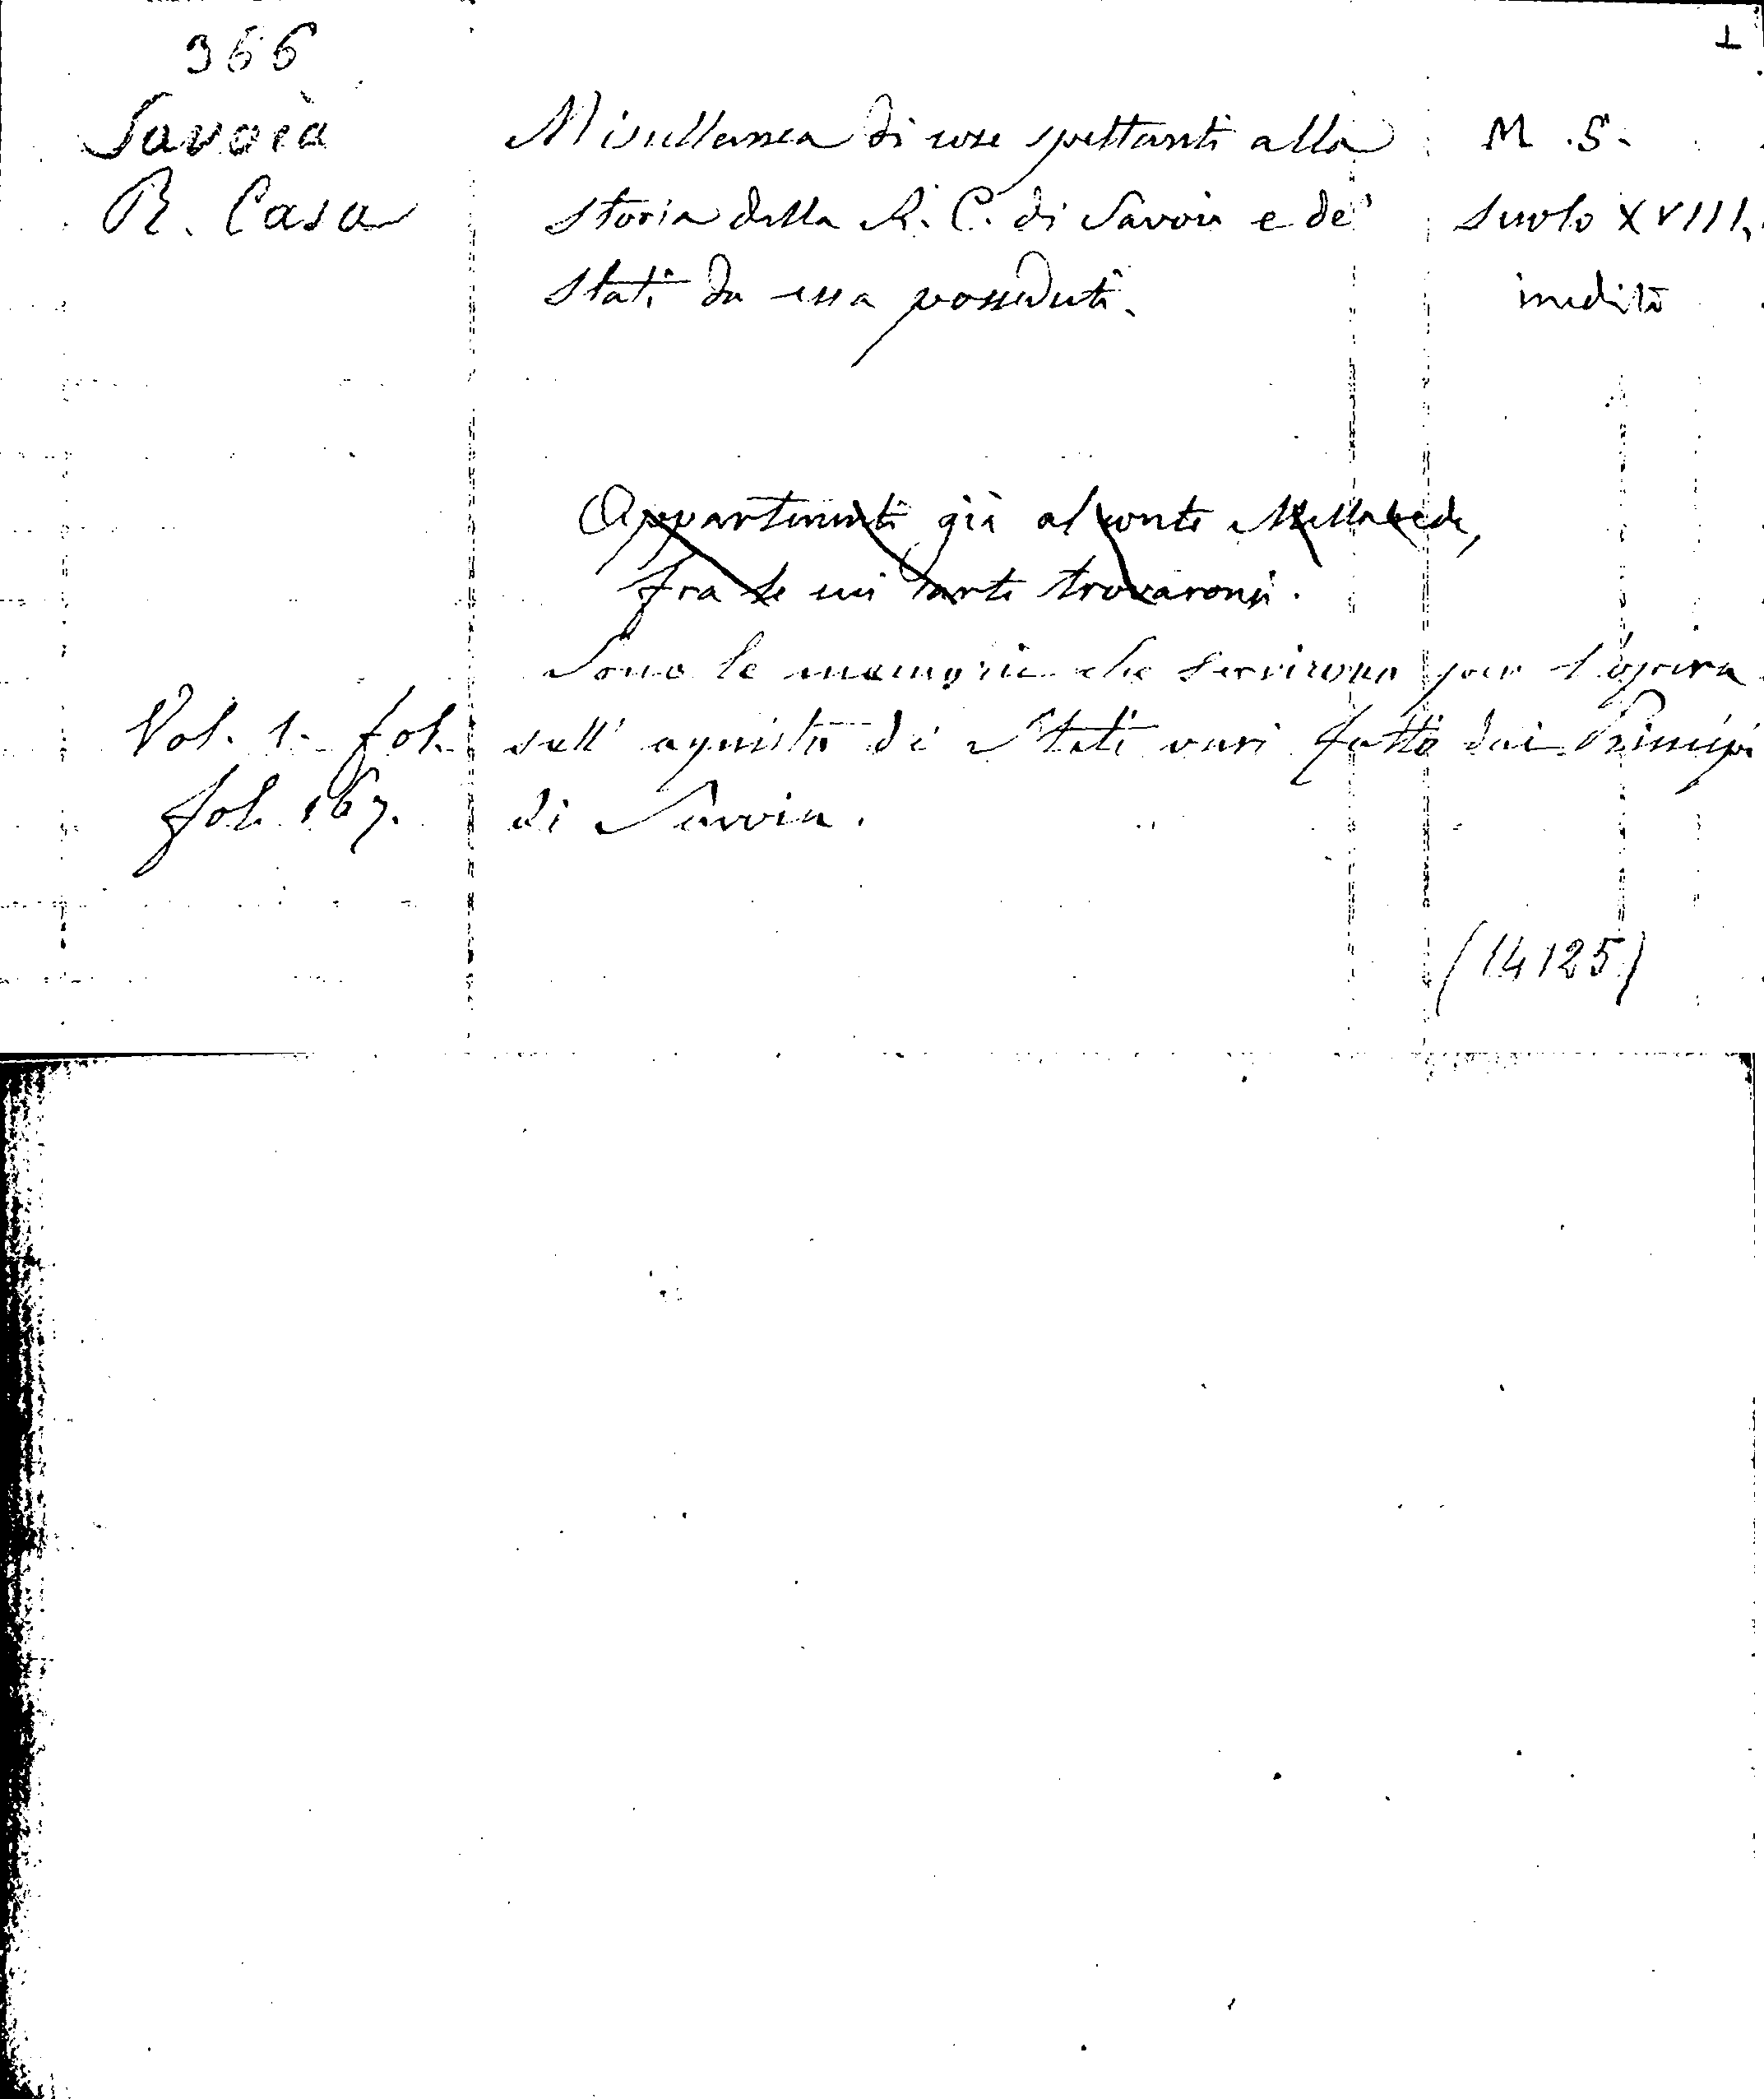 366
Savoia
R. Casa
Miscellanea di cose spettanti alla
storia della R. C. di Savoia e de'
stati da essa posseduti.
M. S.
secolo XVIII,
inedito
Appartenenti già al conte Mellarede,
fra le cui carte trovaronsi.
Sono le memorie che servirono per l'opera
sull' aquisto de' Stati vari fatto dai Principi
di Savoia.
Vol. 1. fol.
fol. 167.
(14125)